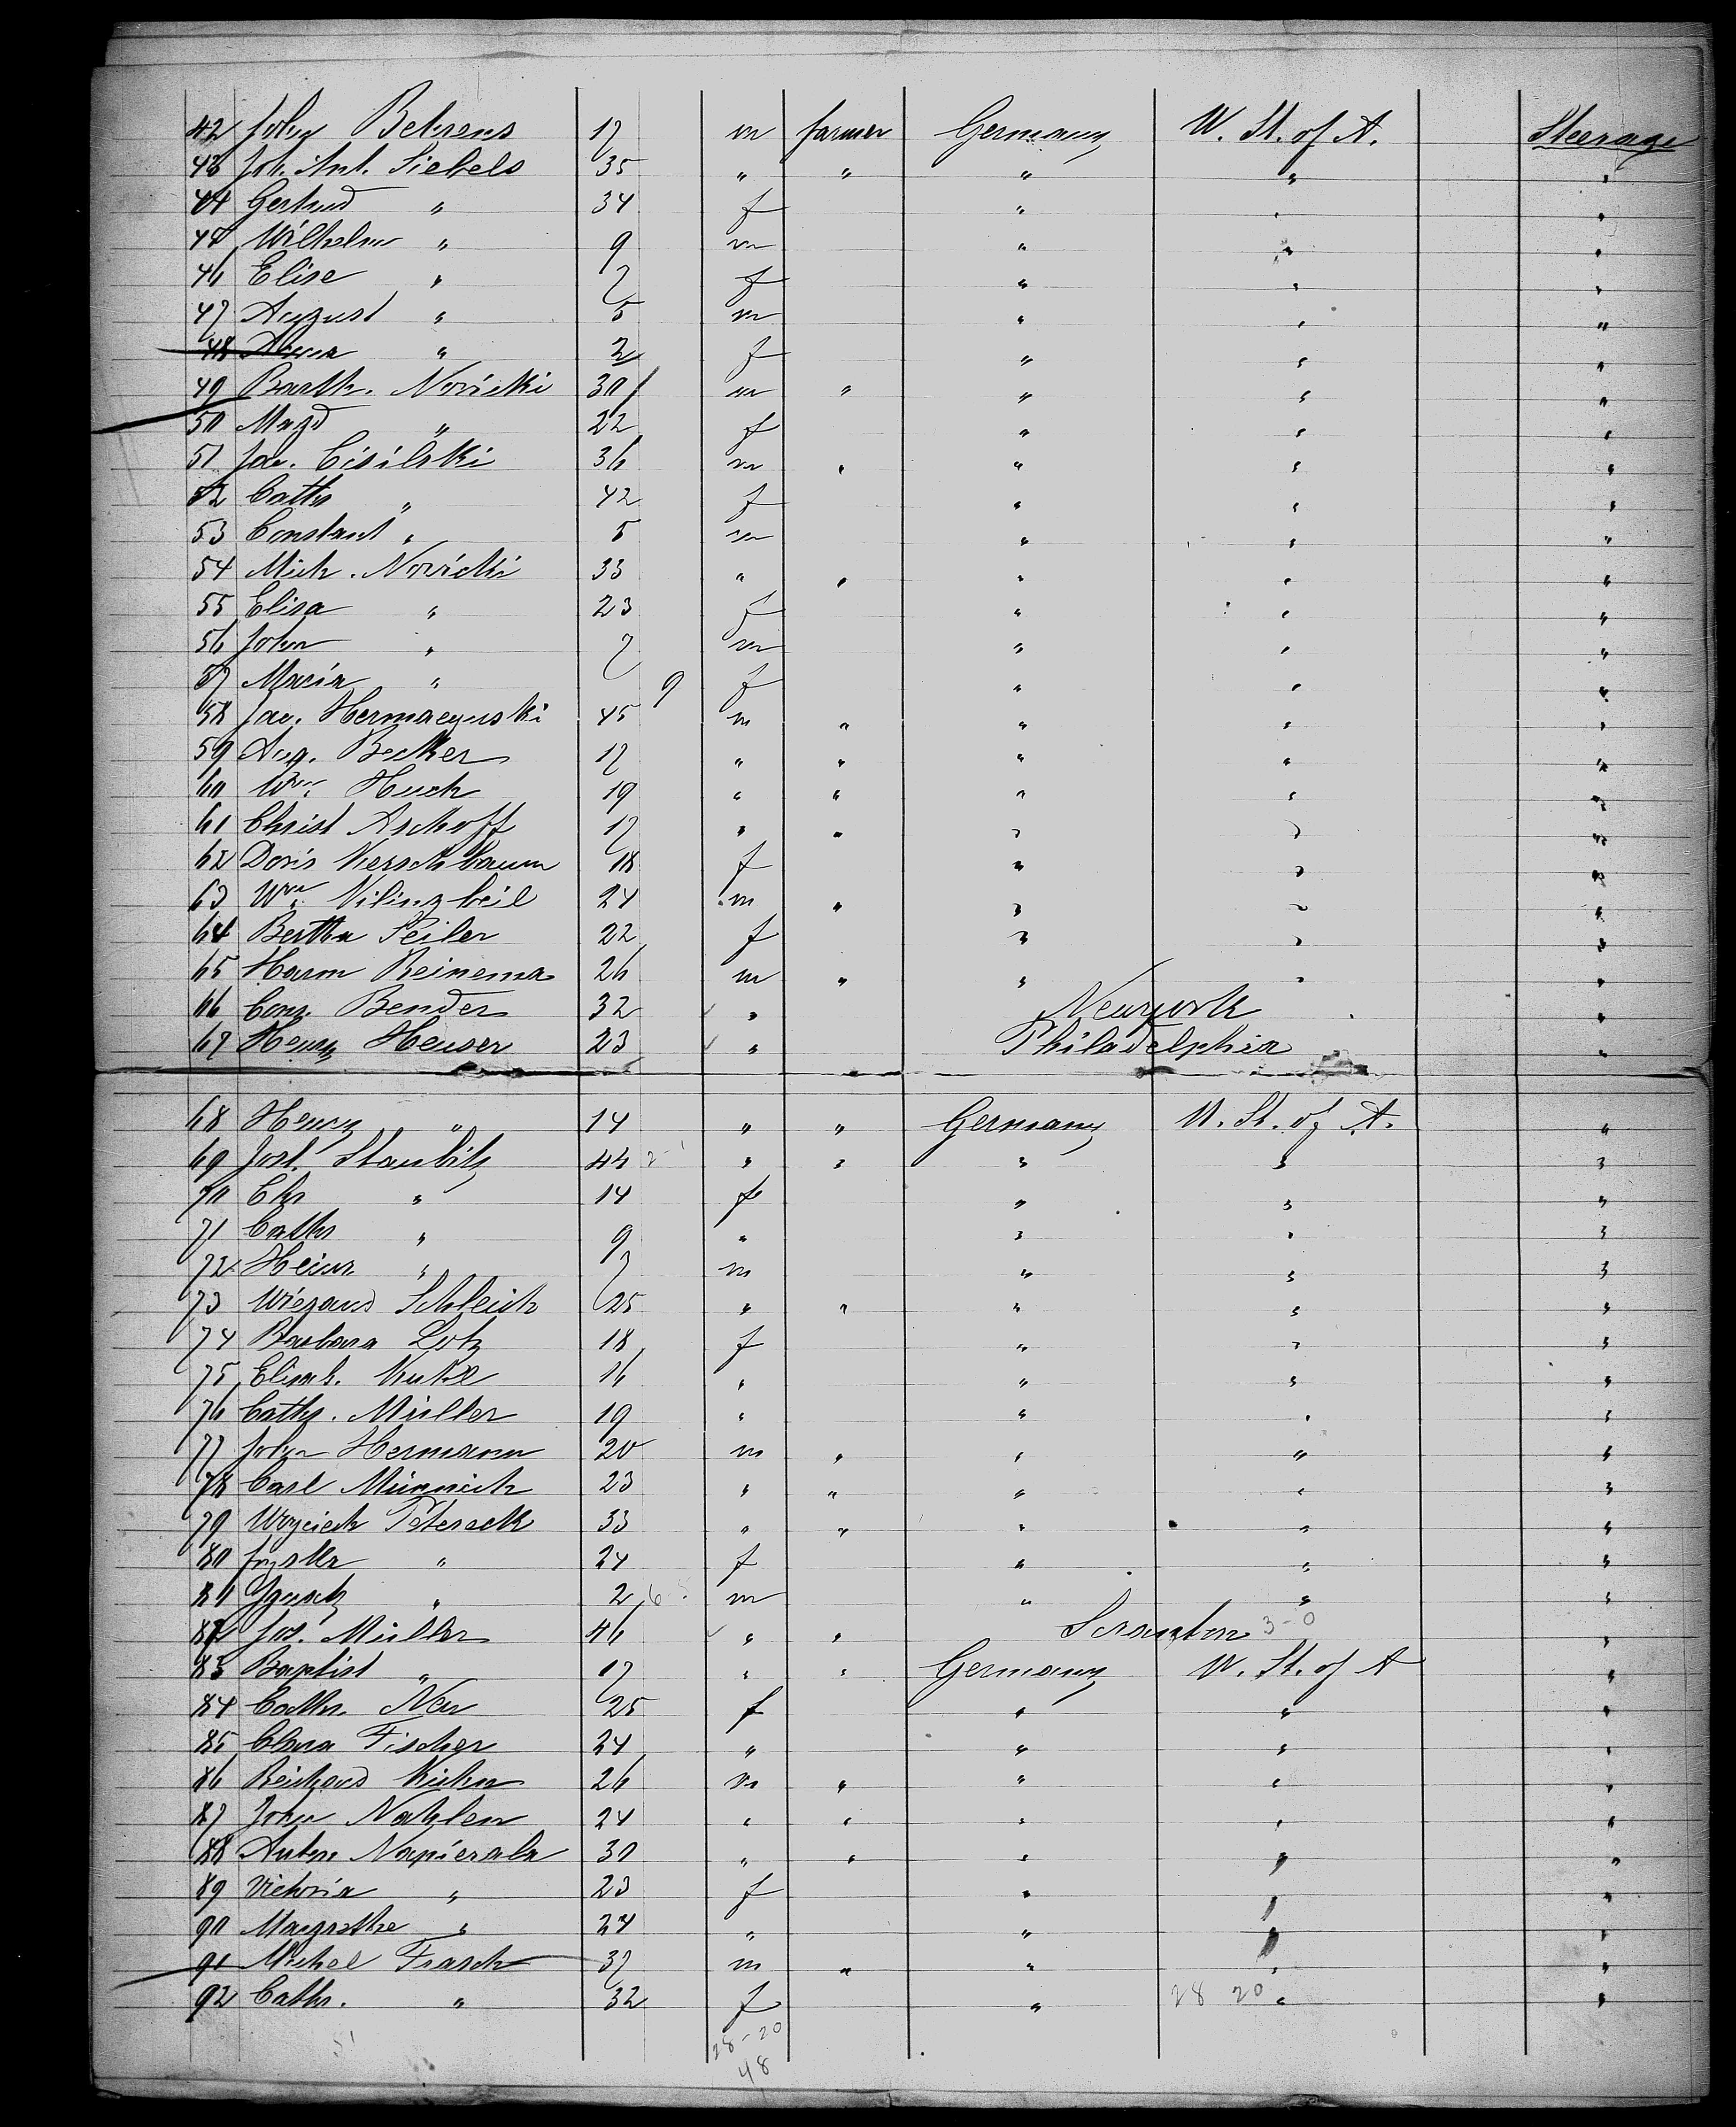 42 John Behrens 17 m farmer Germany U. St. of A. Steerage
43 Joh. Ant. Siebels 35 " " " " "
44 Gertrud " 34 f " " "
45 Wilhelm " 9 m " " "
46 Elise " 7 f " " "
47 August " 5 m " " "
48 Anna " 2 f " " "
49 Barth. Novicki 30 m " " " "
50 Magd " 22 f " " "
51 Jac. Cisilski 36 m " " " "
52 Cath " 42 f " " "
53 Constant " 5 m " " "
54 Mich. Novicki 33 " " " " "
55 Elisa " 23 f " " "
56 John " 7 m " " "
57 Maria " 9 f " " "
58 Jac. 45 m " " " "
59 Aug. Becker 17 " " " " "
60 Wm. Huch 19 " " " " "
61 Christ Aschoff 17 " " " " "
62 Doris Kerschbaum 18 f " " "
63 Wm. 24 m " " " "
64 Bertha Peiler 22 f " " "
65 Harm Reinema 26 m " " " "
66 Conr. Bender 32 " Newyork "
67 Henry Heuser 23 " Philadelphia "
68 Henry " 14 " " Germany U. St. of A. "
69 Jost. Staubitz 44 " " " " "
70 Chr " 14 f " " "
71 Cath " 9 " " " "
72 Heinr " 7 m " " "
73 Wiegand Schleich 25 " " " " "
74 Barbara Lotz 18 f " " "
75 Elisab. 16 " " " "
76 Cath. Müller 19 " " " "
77 John Hermann 20 m " " " "
78 Carl Münnich 23 " " " " "
79 Woyciech Petersek 33 " " " " "
80 " 24 f " " "
81 " 2 m " " "
82 Jos. Müller 46 " " Scranton 3-0 "
83 Baptist " 17 " " Germany U. St. of A "
84 Cath. Neu 25 f " " "
85 Clara Fischer 24 " " " "
86 Reinhard Kuhn 26 m " " " "
87 John Nahlen 24 " " " " "
88 Anton Napierala 30 " " " " "
89 Victoria " 23 f " " "
90 Magrethe " 24 " " " "
91 Michel Frasch 37 m " " " "
92 Cath. " 32 f " 28 20 " "
51 28-20
48